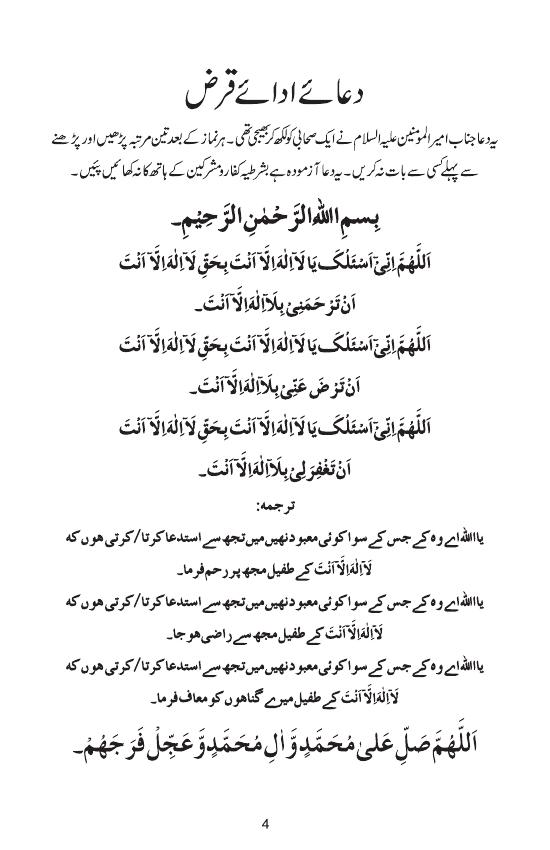 دعائے ادائے قرض
یہ دعا جناب امیر المومنین علیہ السلام نے ایک صحابی کو لکھ کر بھیجی تھی۔ ہر نماز کے بعد تین مرتبہ پڑھیں اور پڑھنے
سے پہلے کسی سے بات نہ کریں۔ یہ دعا آزمودہ ہے بشرطیہ کفار و مشرکین کے ہاتھ کا نہ کھائیں پئیں۔
بِسمِ اﷲِ الرَّحْمٰنِ الرَّحِیْمِ۔
اَللَّھُمَّ اِنِّیْٓ اَسْئَلُکَ یَا لَآ اِلٰہَ اِلَّآ اَنْتَ بِحَقِّ لَآ اِلٰہَ اِلَّآ اَنْتَ
اَنْ تَرْحَمَنِیْ بِلَآ اِلٰہَ اِلَّآ اَنْتَ۔
اَللَّھُمَّ اِنِّیْٓ اَسْئَلُکَ یَا لَآ اِلٰہَ اِلَّآ اَنْتَ بِحَقِّ لَآ اِلٰہَ اِلَّآ اَنْتَ
اَنْ تَرْضَ عَنِّیْ بِلَآ اِلٰہَ اِلَّآ اَنْتَ۔
اَللَّھُمَّ اِنِّیْٓ اَسْئَلُکَ یَا لَآ اِلٰہَ اِلَّآ اَنْتَ بِحَقِّ لَآ اِلٰہَ اِلَّآ اَنْتَ
اَنْ تَغْفِرَلِیْ بِلَآ اِلٰہَ اِلَّآ اَنْتَ۔
ترجمہ:
یا اﷲ اے وہ کے جس کے سوا کوئی معبود نھیں میں تجھ سے استدعا کرتا/کرتی ھوں کہ
لَآ اِلٰہَ اِلَّآ اَنْتَ کے طفیل مجھ پر رحم فرما۔
یا اﷲ اے وہ کے جس کے سوا کوئی معبود نھیں میں تجھ سے استدعا کرتا/کرتی ھوں کہ
لَآ اِلٰہَ اِلَّآ اَنْتَ کے طفیل مجھ سے راضی ھو جا۔
یا اﷲ اے وہ کے جس کے سوا کوئی معبود نھیں میں تجھ سے استدعا کرتا/کرتی ھوں کہ
لَآ اِلٰہَ اِلَّآ اَنْتَ کے طفیل میرے گناھوں کو معاف فرما۔
اَللَّھُمَّ صَلِّ عَلیٰ مُحَمَّدٍ وَّ اٰلِ مُحَمَّدٍ وَّ عَجِّلْ فَرَجَھُمْ۔
4